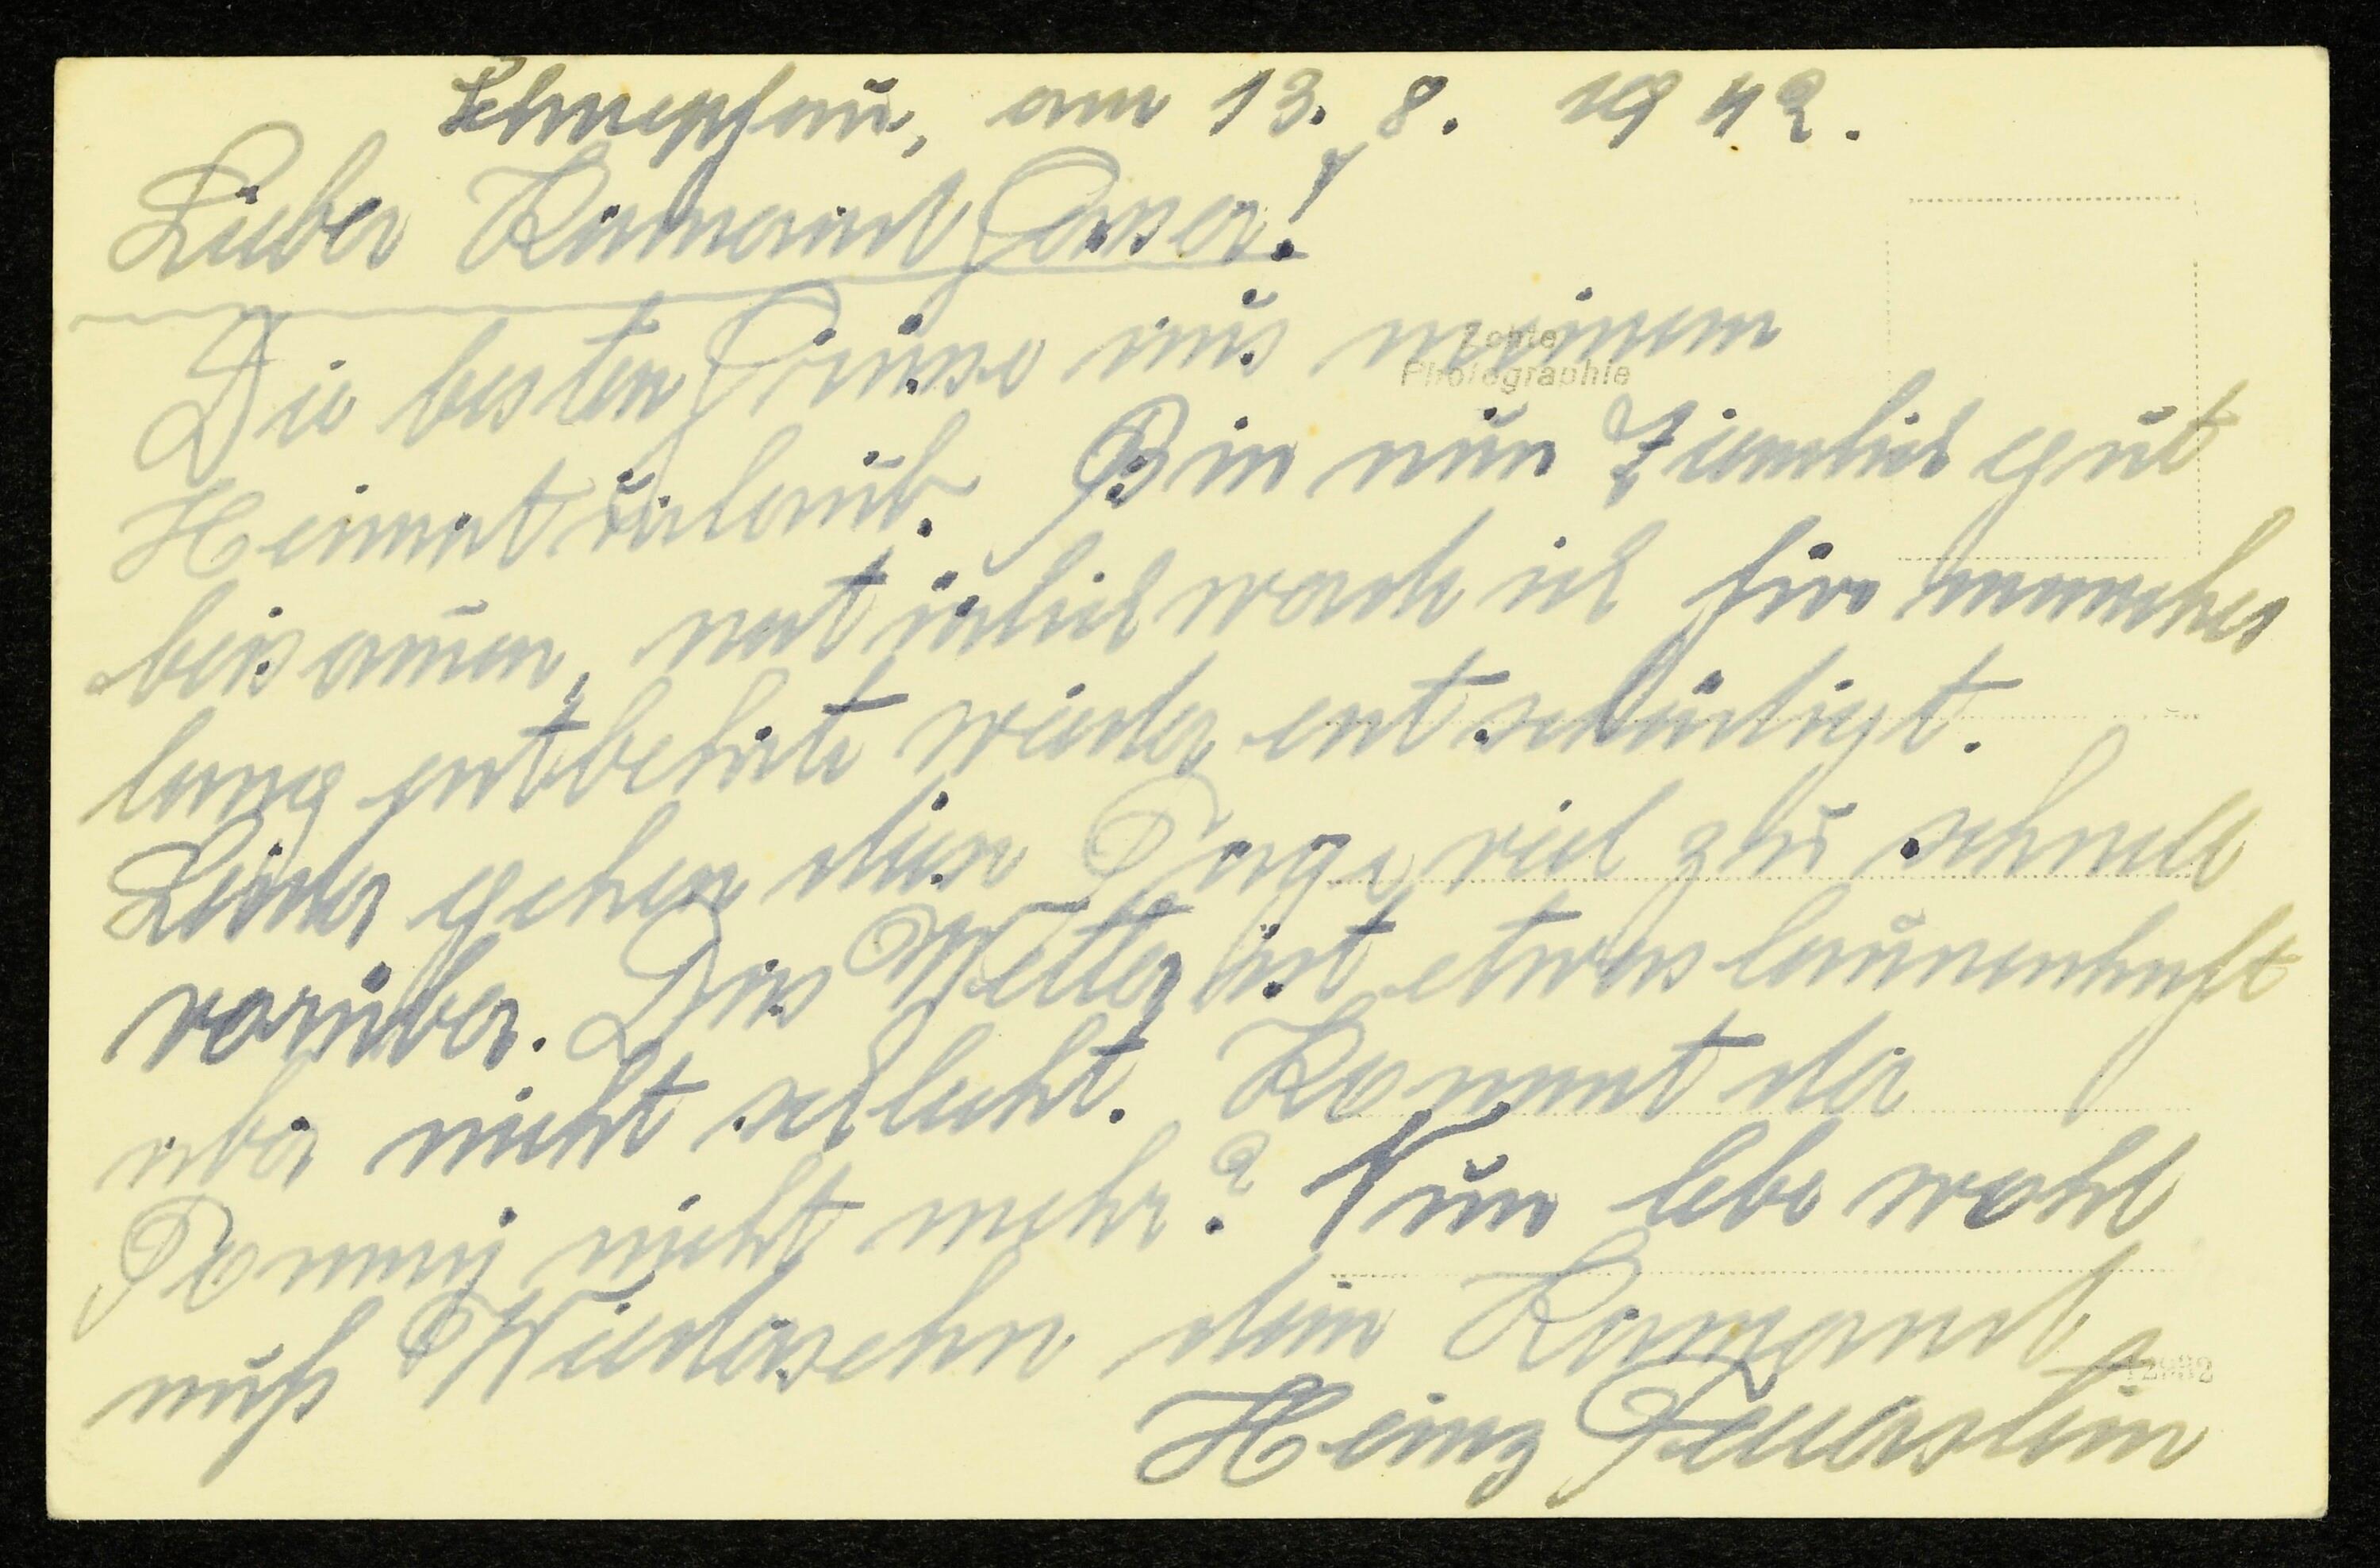 Schnepfau, am 13. 8. 1942.
Lieber Kamerad Ganser!
Die besten Grüsse aus meinem
Echte
Photographie
Heimaturlaub. Bin nun ziemlich gut
beisamen, natürlich werde ich für manches
lang entbehrte wieder entschädigt.
Leider gehen diese Tage viel zu schnell
vorüber. Das Wetter ist etwas launenhaft
aber nicht schlecht. Kommt der
Rommy nicht mehr? Nun lebe wohl
auf Wiedersehn dein Kamerad
12982
Heinz Feuerstein